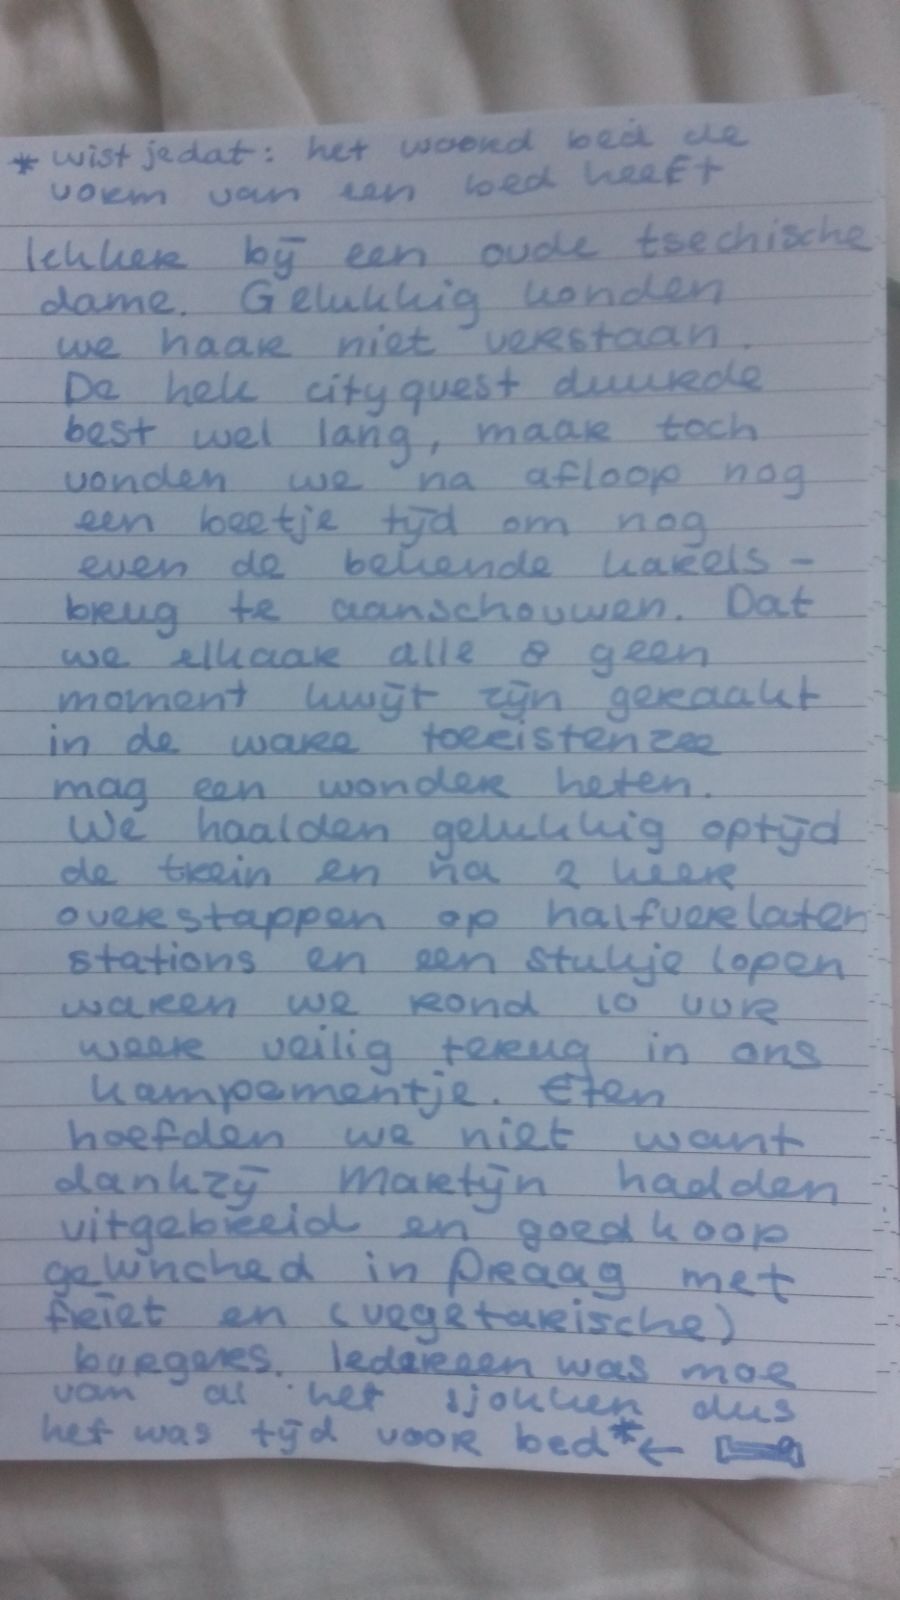 * wist je dat: het woord bed de
vorm van een bed heeft
lekker bij een oude tsechische
dame. Gelukkig konden
we haar niet verstaan.
De hele cityquest duurde
best wel lang, maar toch
vonden we na afloop nog
een beetje tijd om nog
even de bekende karels-
brug te aanschouwen. Dat
we elkaar alle 8 geen
moment kwijt zijn geraakt
in de ware toeristenzee
mag een wonder heten.
We haalden gelukkig optijd
de trein en na 2 keer
overstappen op halfverlaten
stations en een stukje lopen
waren we rond 10 uur
weer veilig terug in ons
kampementje. Eten
hoefden we niet want
dankzij Martijn hadden
uitgebreid en goedkoop
geluncht in Praag met
friet en (vegetarische)
burgers. Iedereen was moe
van al het sjokken dus
het was tijd voor bed* ←